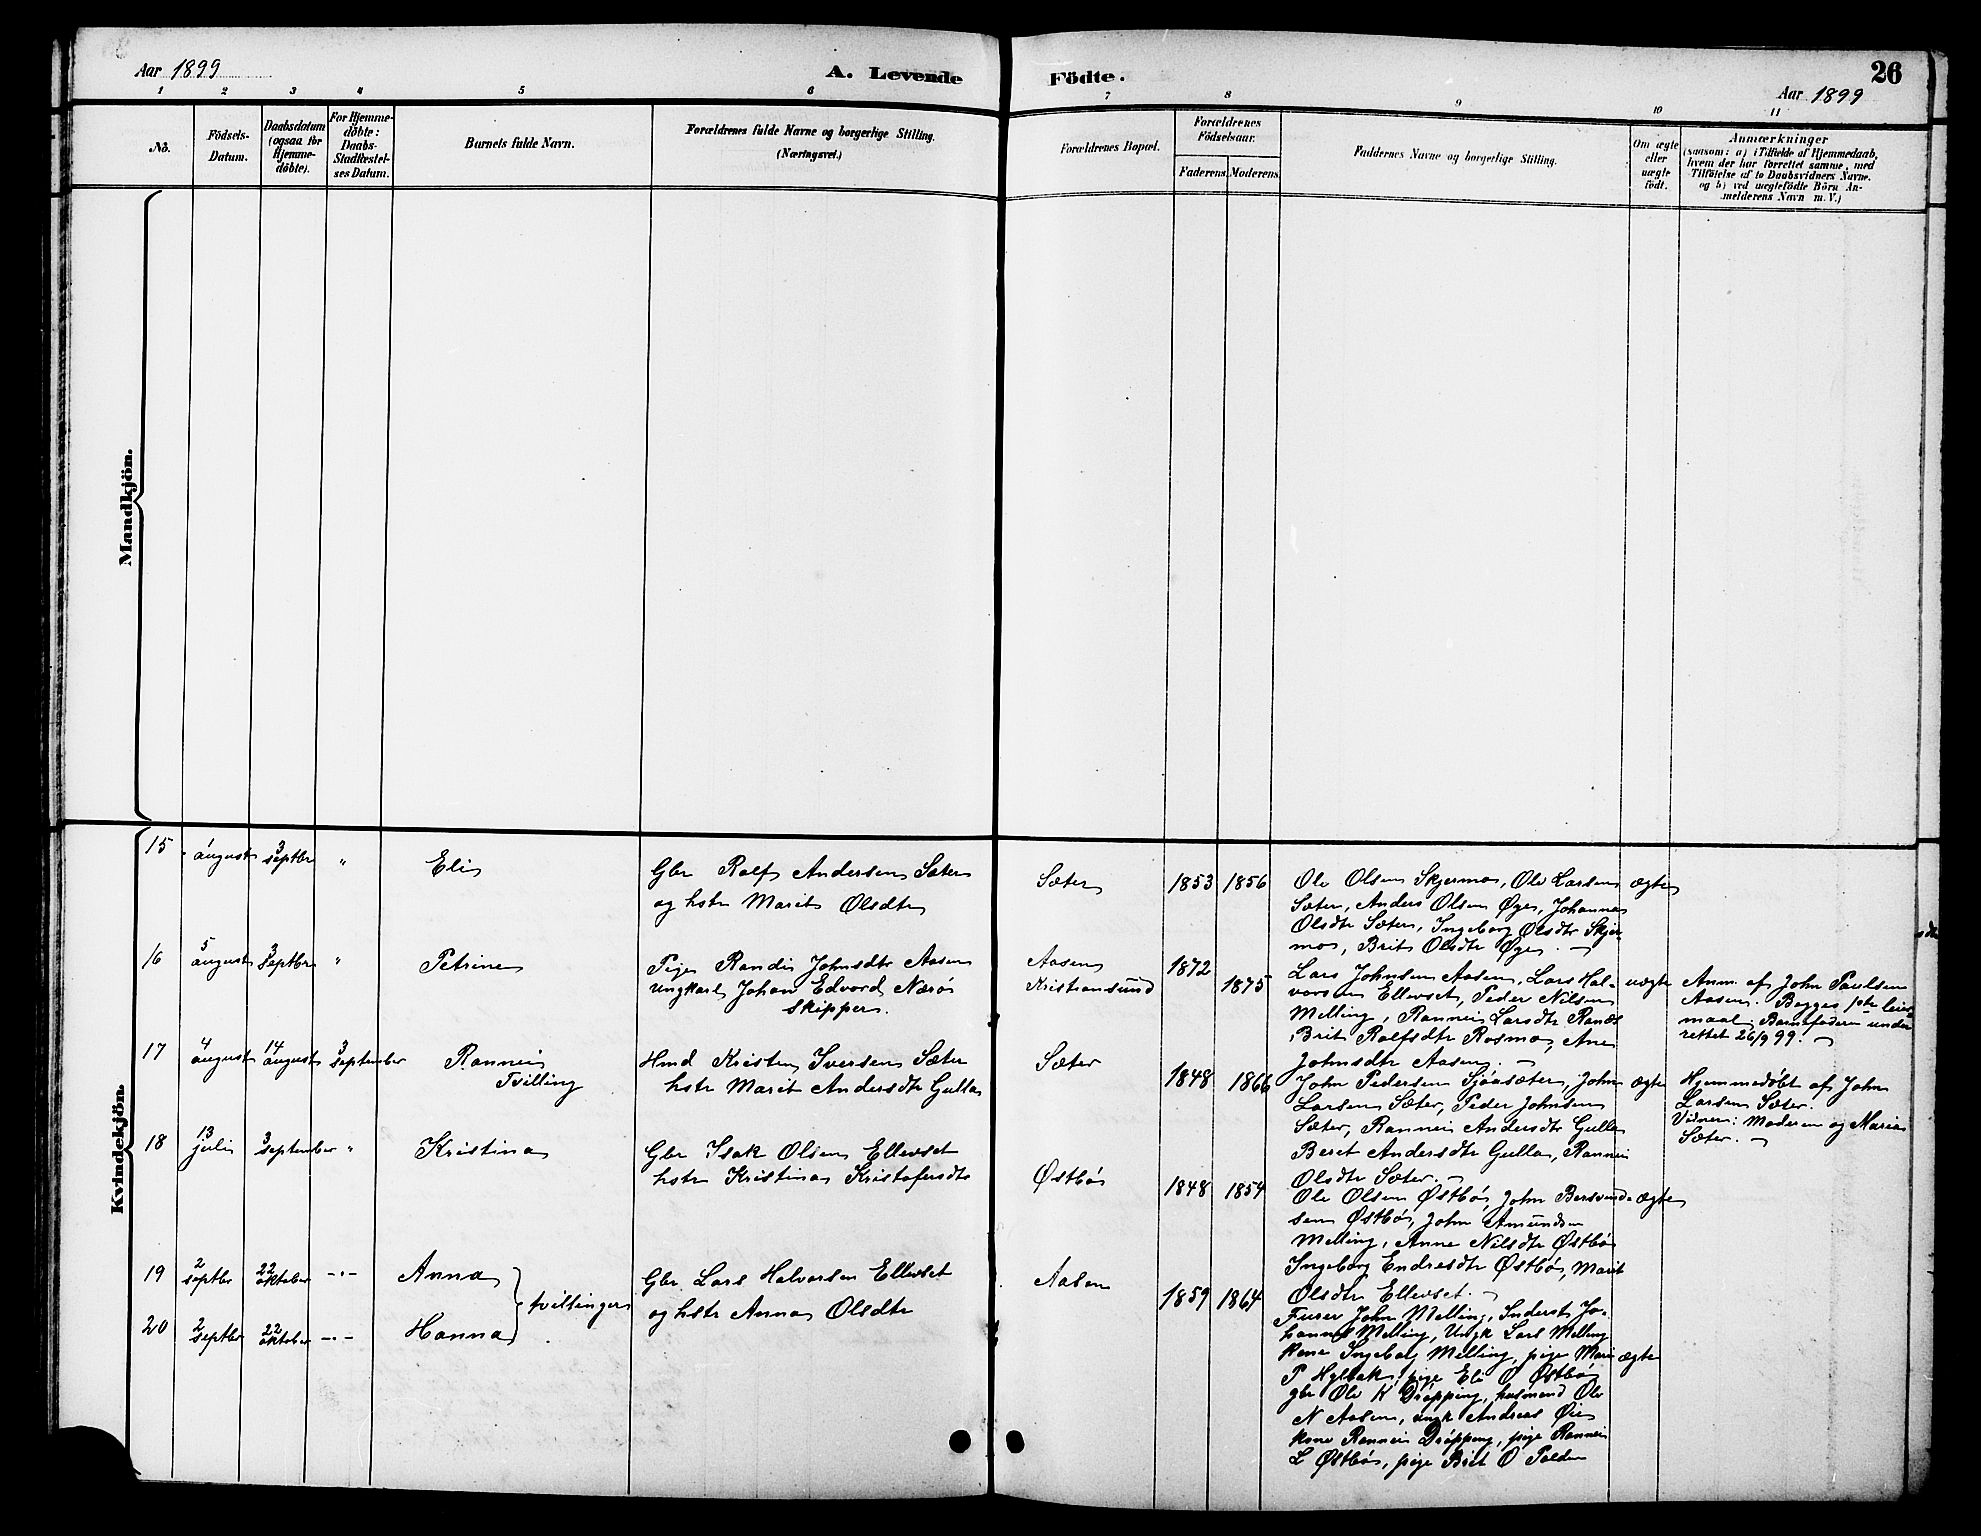 Aar 1899
A. Levende Födte.
26
Aar 1899
1 2 3 4 5 6 7 8 9 10 11
No.
Födsels-
Datum.
Daabsdatum
(ogsaa for
Hjemme-
døbte).
For Hjemme-
døbte:
Daabs-
Stadfæstel-
ses Datum.
Barnets fulde Navn.
Forældrenes fulde Navne og borgerlige Stilling.
(Næringsvei.)
Forældrenes Bopæl.
Forældrenes
Födselsaar.
Faderens. Moderens.
Faddernes Navne og borgerlige Stilling.
Om ægte
eller
uægte
födt.
Anmærkninger
(saasom: a) i Tilfælde af Hjemmedaab,
hvem der har forrettet samme, med
Tilföielse af to Daabsvidners Navne.
og b) ved uægtefödte Börn An-
melderens Navn m. V.)
Mandkjön.
Kvindekjön.
15
august
3
septbr
"
Eli
Gbr Rolf Andersen Sæter
og hstr Marit Olsdtr
Sæter
1853
1856
Ole Olsen Skjermo, Ole Larsen
Sæter, Anders Olsen Øye, Johanna
Olsdtr Sæter, Ingeborg Olsdtr Skjer-
mo, Brit Olsdtr Øye. –
ægte
16
5
august
3
Septbr
"
Petrine
Pige Randi Johnsdtr Aasen
ungkarl Johan Edvard Nærø
Skipper.
Aasen
Kristiansund
1872
1875
Lars Johnsen Aasen, Lars Hal-
vorsen Ellevset, Peder Nilsen
Melling, Rannei Larsdtr Ranæs
Brit Rolfsdtr Rosmo, Ane
Johnsdtr Aasen. –
uægte
Anm. af John Paulsen
Aasen. Begges 1ste leier-
maal. Barnefaderen under-
rettet 26/9 99. –
17
4
august
14
august
3
september
Rannei
Tvilling
Hmd Kristen Iversen Sæter
hstr Marit Andersdtr Gulla
Sæter
1848
1866
John Pedersen Sjøasæter, John
Larsen Sæter, Peder Johnsen
Sæter, Rannei Andersdtr Gulla
Berit Andersdtr Gulla, Rannei
Olsdtr Sæter. –
ægte
Hjemmedøbt af John
Larsen Sæter.
Vidner: Moderen og Maria
Sæter. –
18
13
juli
3
september
"
Kristina
Gbr Isak Olsen Ellevset
hstr Kristina Kristofersdtr
Østbø
1848
1854
Ole Olsen Østbø, John Bersvend-
sen Østbø, John Amundsen
Melling, Anne Nilsdtr Østbø
Ingeborg Endresdtr Østbø, Marit
Olsdtr Ellevset. –
ægte
19
2
septbr
22
oktober
-"-
Anna
20
2
septbr
22
oktober
-"-
Hanna
tvillinger
Gbr Lars Halvorsen Ellevset
og hstr Anna Olsdtr
Aasen
1859
1864
Furer John Melling, Inderst Jo-
hannes Melling, Ungk Lars Melling
kone Ingeborg Melling, pige Mari
P Hylbak, pige Eli O Østbø
gbr Ole K Drøpping, husmand Ole
N Aasen, ungk Andreas Øie
kone Rannei Drøpping, pige Rannei
L Østbø, pige Brit O Talden
ægte